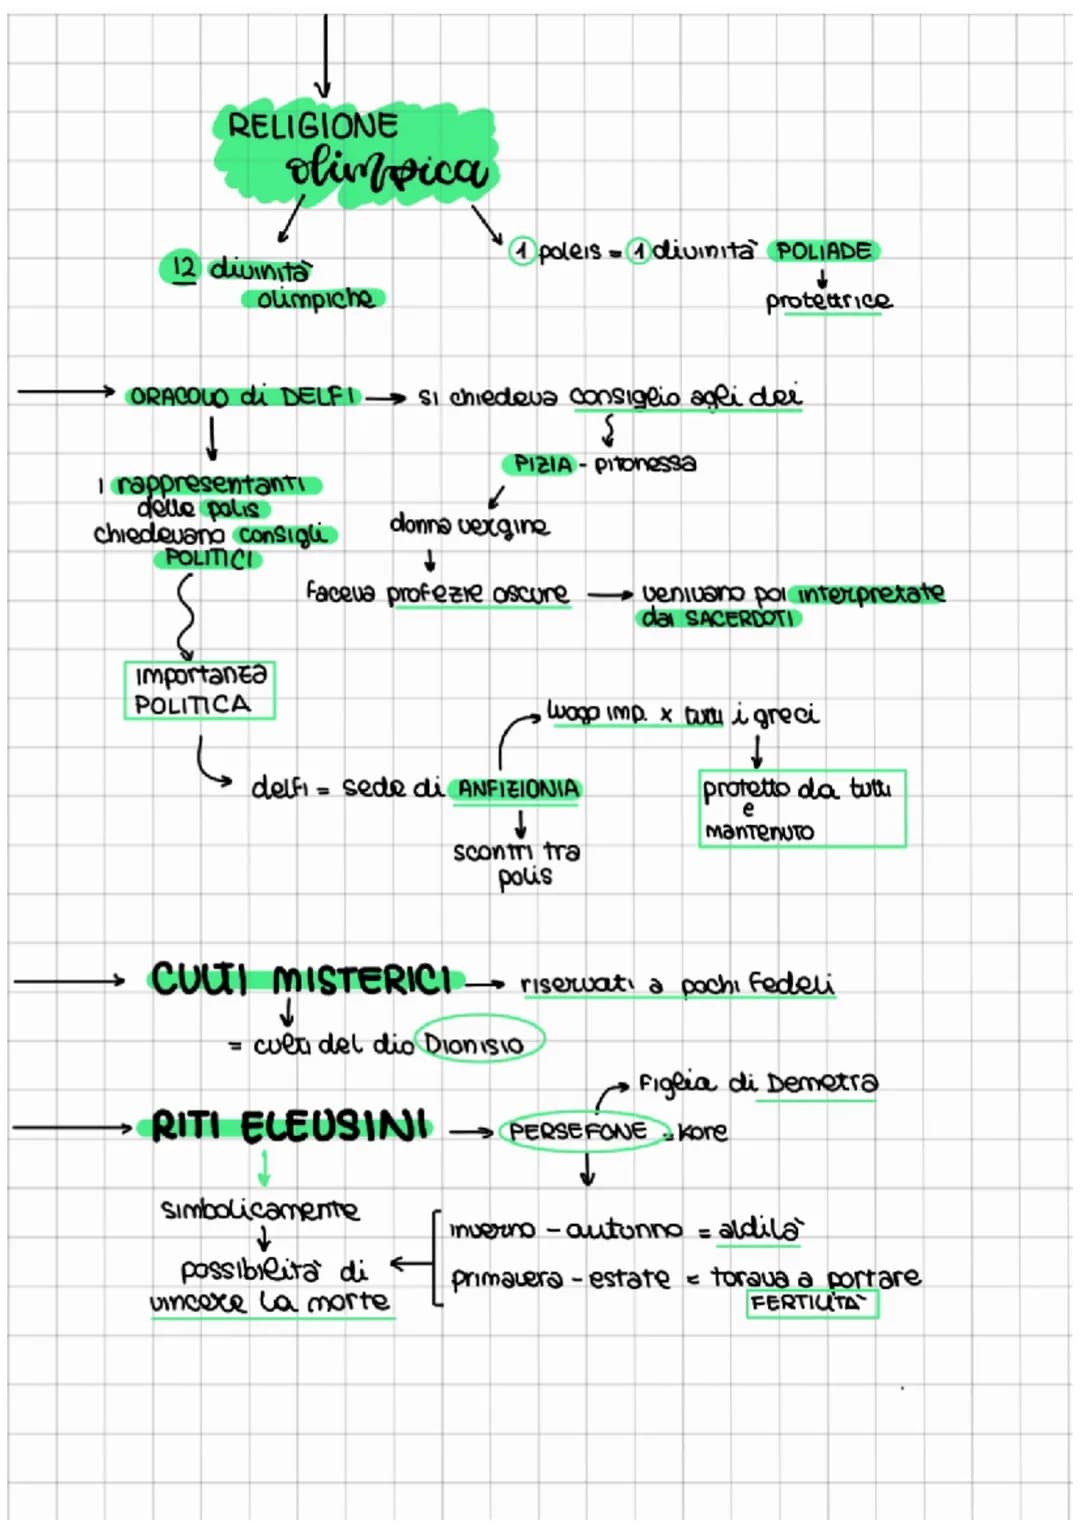 RELIGIONE
olimpica
12 divinità
olimpiche
1 poleis = 1 divinità POLIADE
protettrice
ORACOLO di DELFI → si chiedeva consiglio agli dei
PIZIA - pitonessa
i rappresentanti
delle polis
chiedevano consigli
POLITICI
donna vergine
faceva profezie oscure → venivano poi interpretate
dai SACERDOTI
importanza
POLITICA
luogo imp. x tutti i greci
delfi = sede di ANFIZIONIA
protetto da tutti
e
mantenuto
scontri tra
polis
CULTI MISTERICI → riservati a pochi fedeli
= culti del dio Dionisio
figlia di Demetra
RITI ELEUSINI → PERSEFONE = Kore
simbolicamente
possibilità di
vincere la morte
inverno - autunno = aldilà
primavera - estate = torava a portare
FERTILITÀ